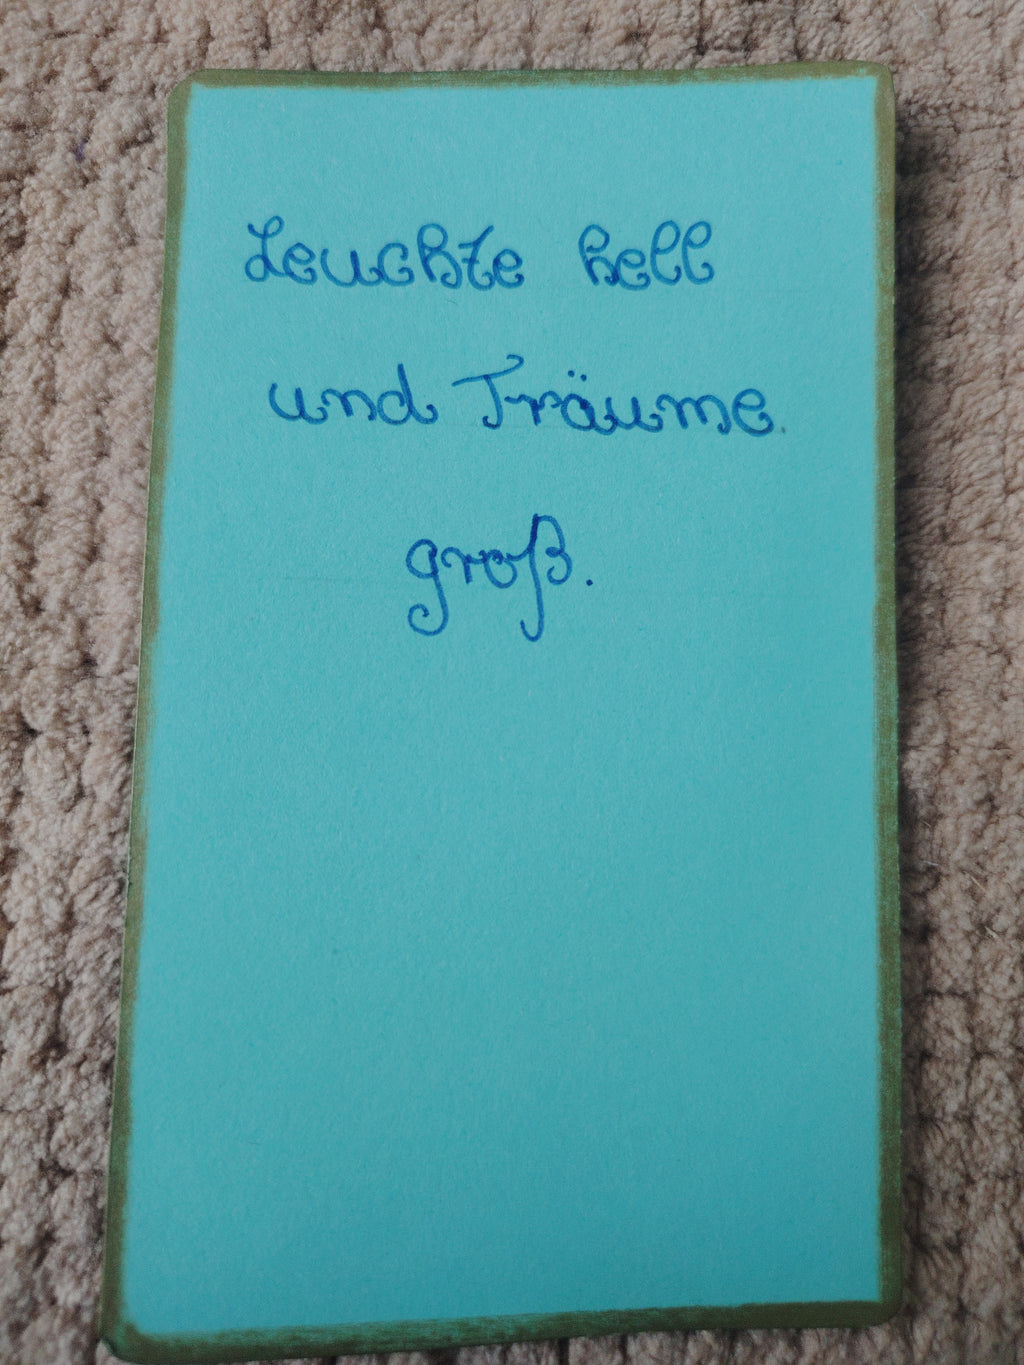 Leuchte hell
und Träume
groß.